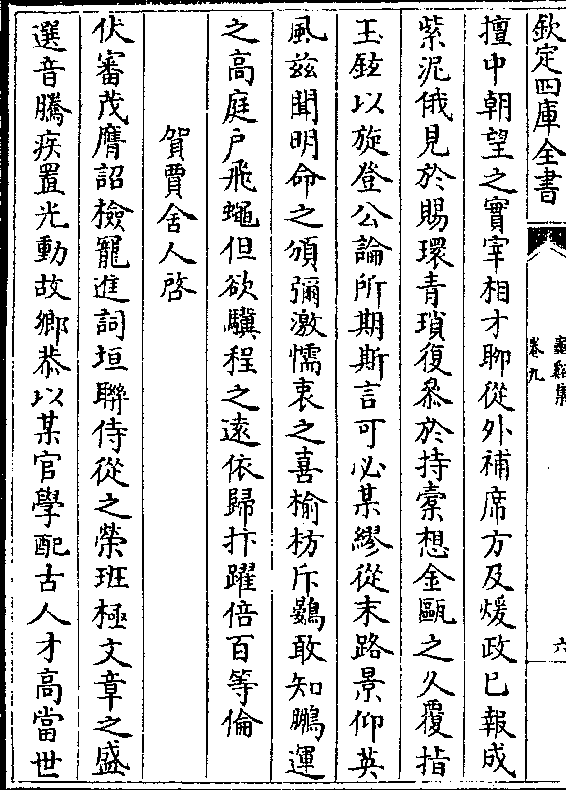 欽定四庫全書
卷九
六
擅中朝望之實宰相才聊從外補席方及煖政已報成
紫泥俄見於賜環青瑣復叅於持橐想金甌之久覆指
玉鉉以旋登公論所期斯言可必某繆從末路景仰英
風兹聞明命之頒彌激懦衷之喜榆枋斥鷃敢知鵬運
之高庭户飛蠅但欲驥程之遠依歸抃躍倍百等倫
賀賈舍人啓
伏審茂膺詔檢寵進詞垣聨侍從之榮班極文章之盛
選音騰疾置光動故鄉恭以某官學配古人才高當世